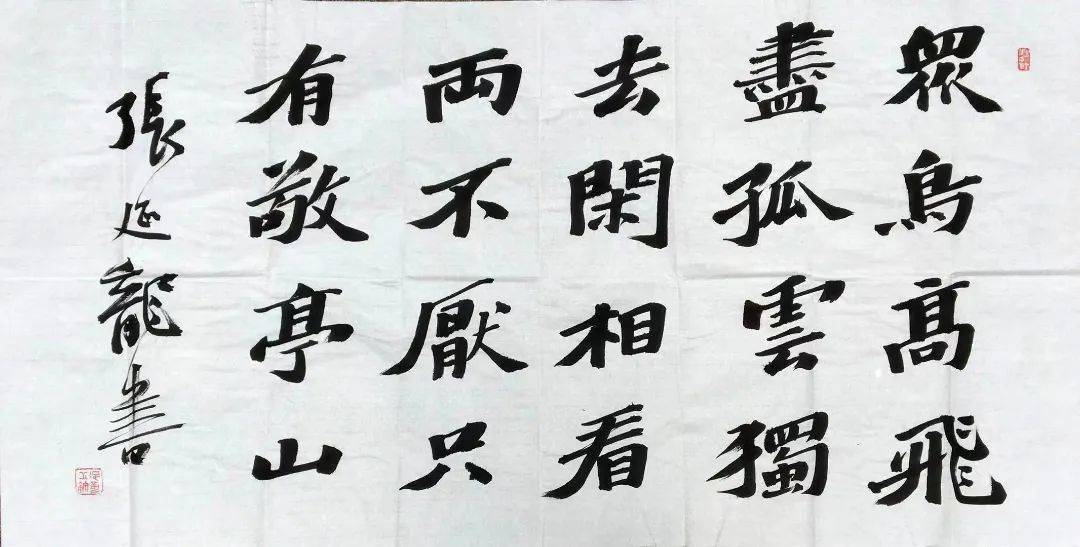 眾鳥高飛
盡孤雲獨
去閑相看
兩不厭只
有敬亭山
張延龍書